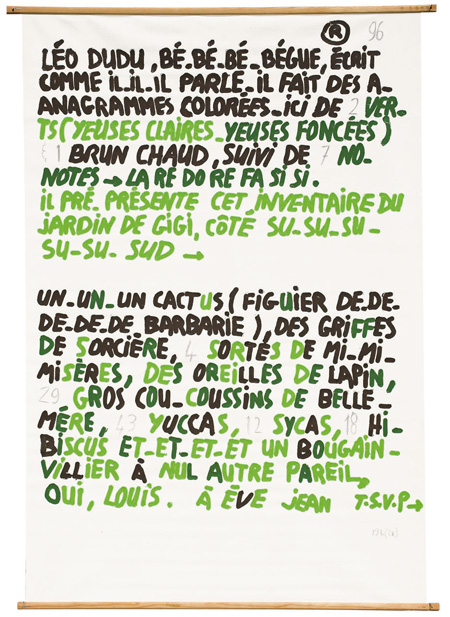 ® 96
LÉO DUDU, BÉ-BÉ-BÉ-BÉGUE, ÉCRIT
COMME iL-iL-iL PARLE-iL FAIT DES A-
ANAGRAMMES COLORÉES-iCi DE 2 VER-
TS (YEUSES CLAIRES-YEUSES FONCÉES)
1 BRUN CHAUD, SUIVI DE 7 NO-
NOTES → LA RÉ DO RE FA Si Si.
iL PRÉ-PRÉSENTE CET INVENTAIRE DU
JARDIN DE GIGI, CÔTÉ SU-SU-SU-
SU-SU-SUD →
UN-UN-UN CACTUS (FIGUIER DE-DE-
DE-DE-DE BARBARIE), DES GRIFFES
DE SORCIÈRE, 4 SORTES DE MI-MI-
MISÈRES, DES OREILLES DE LAPIN,
29 GROS COU-COUSSINS DE BELLE-
MÉRE, 43 YUCCAS, 12 SYCAS, 18 Hi-
BISCUS ET-ET-ET-ET UN BOUGAIN-
VILLIER À NUL AUTRE PAREIL,
OUI, LOUIS. À ÈVE JEAN T.S.V.P→